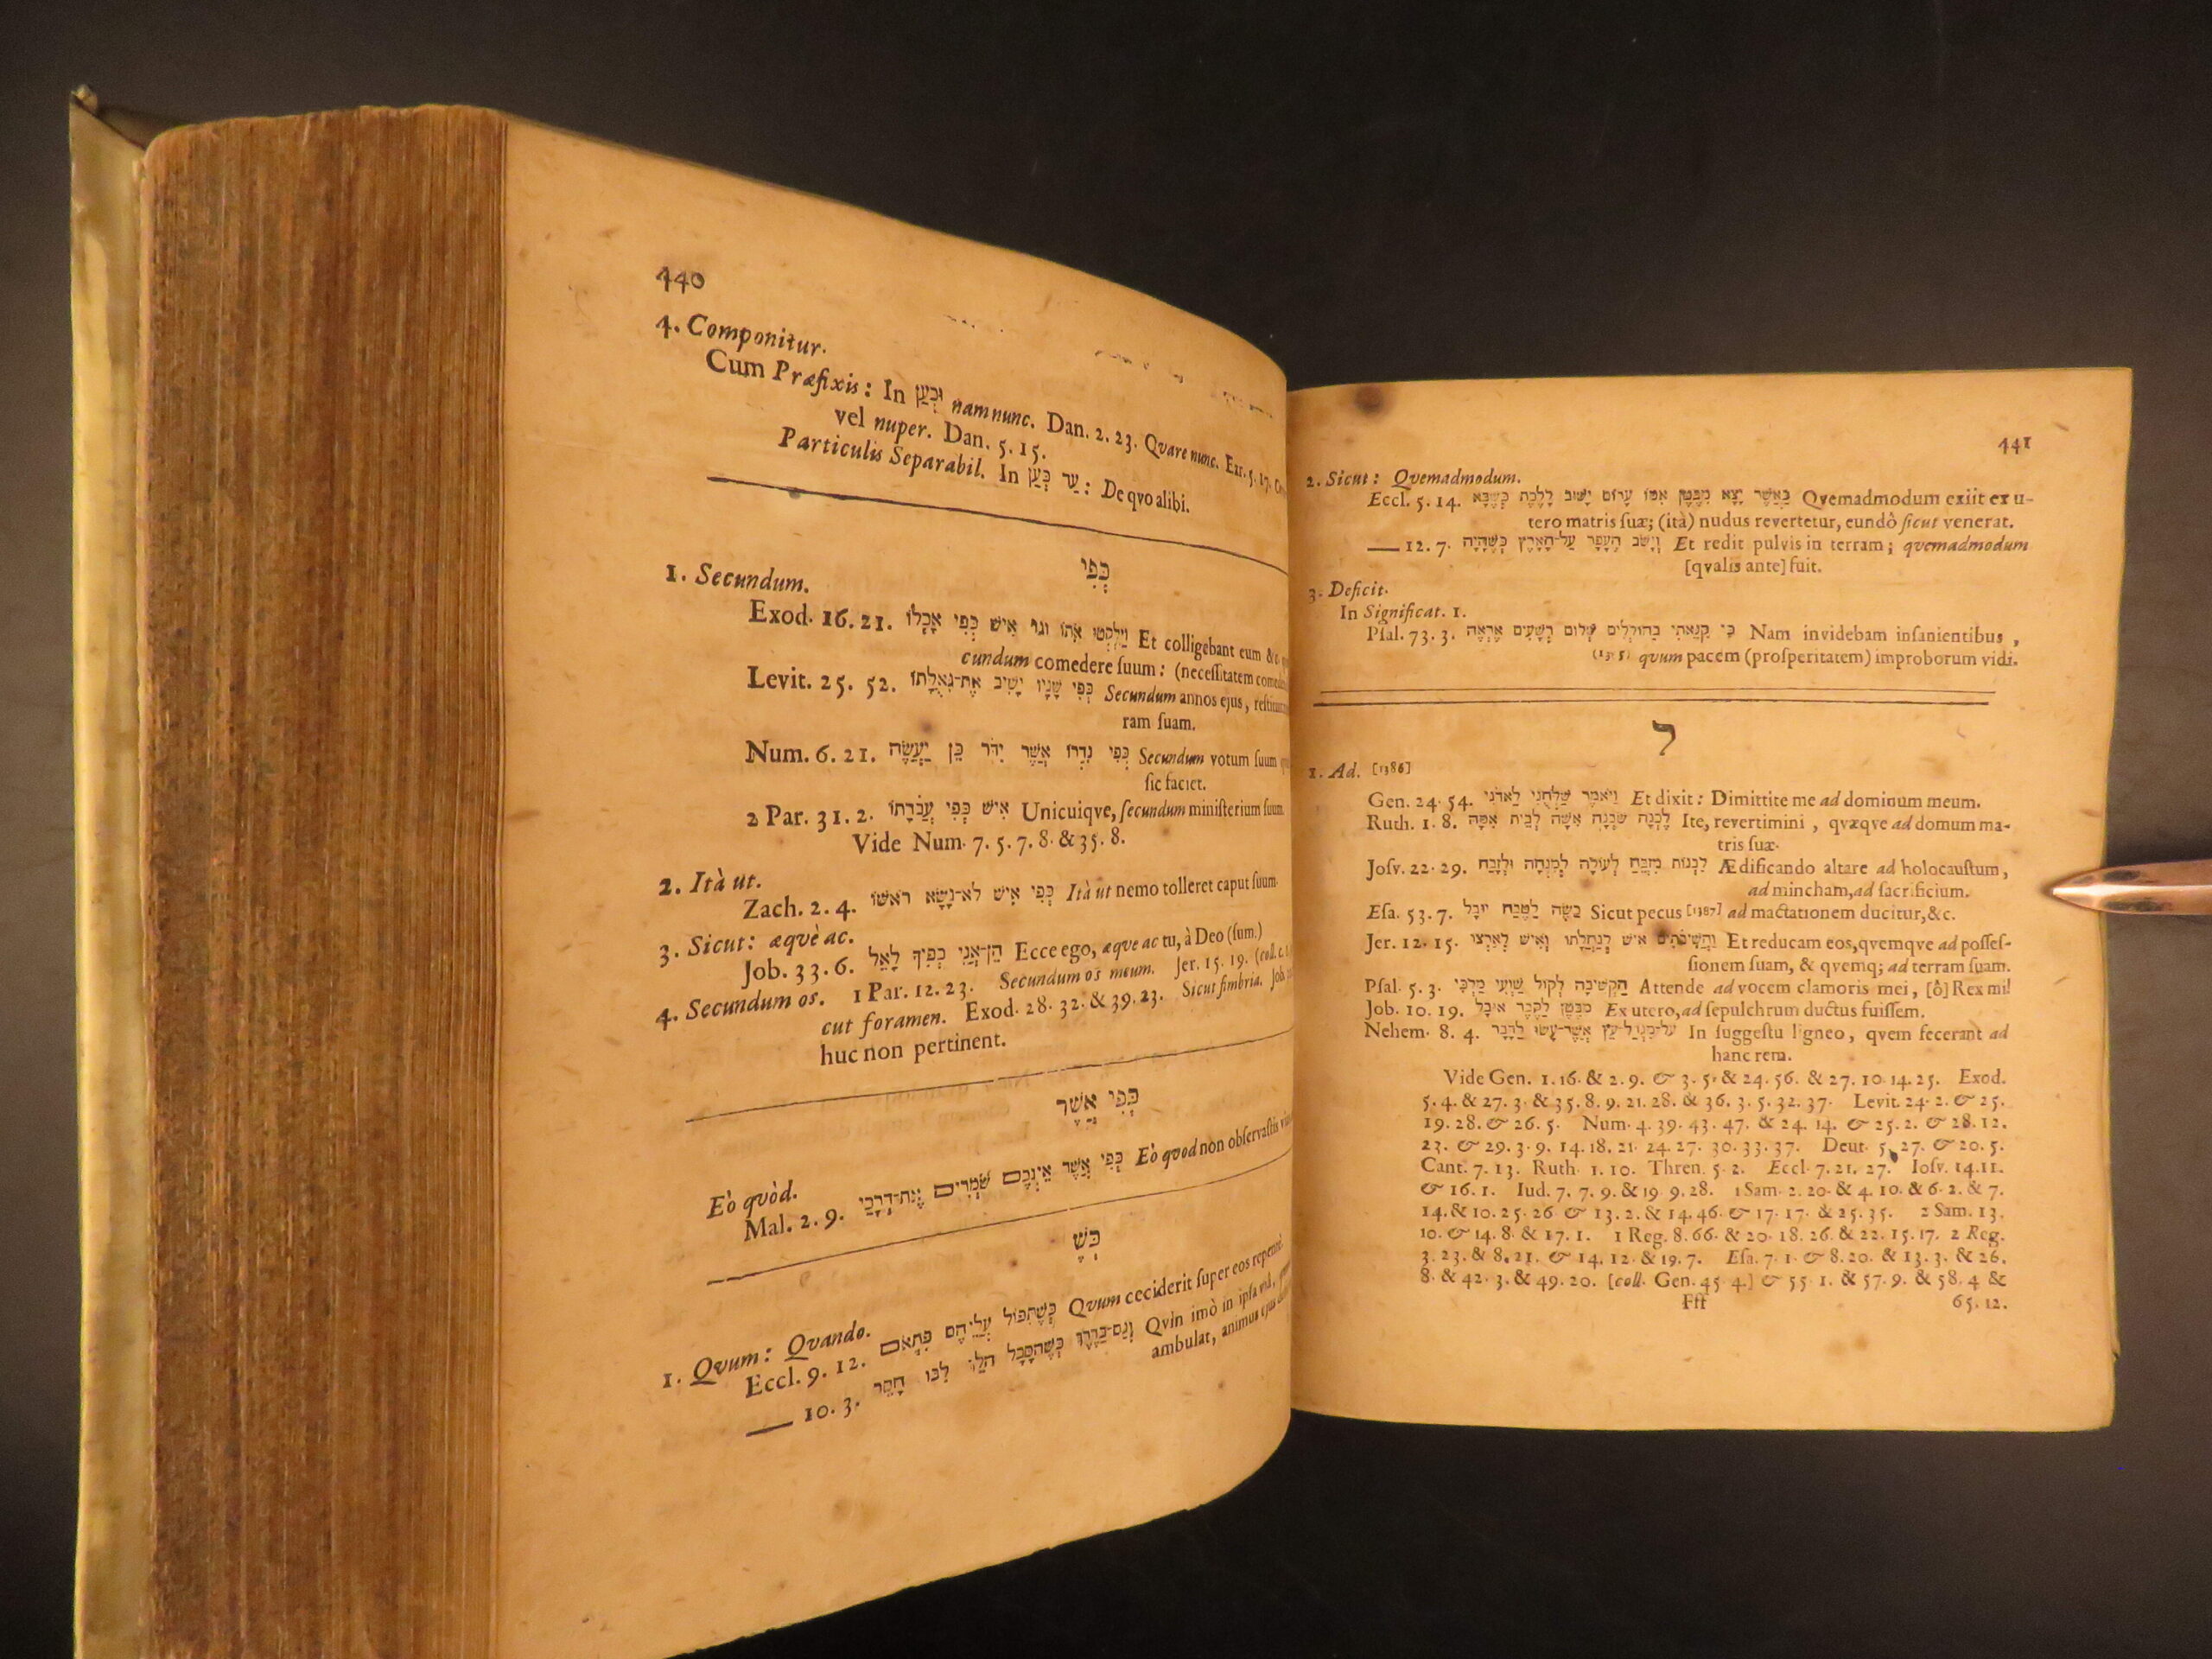 440
4. Componitur.
Cum Præfixis: In וּכְעַן nam nunc. Dan. 2. 23. Qvare nunc. Esr. 5. 17.
vel nuper. Dan. 5. 15.
Particulis Separabil. In עַד כְּעַן: De qvo alibi.
כְּפִי
1. Secundum.
Exod. 16. 21. וַיִּלְקְטוּ אֹתוֹ וגו אִישׁ כְּפִי אָכְלוֹ Et colligebant eum &c.
cundum comedere ſuum: (neceſſitatem
Levit. 25. 52. כְּפִי שָׁנָיו יָשִׁיב אֶת־גְּאֻלָּתוֹ Secundum annos ejus,
ram ſuam.
Num. 6. 21. כְּפִי נִדְרוֹ אֲשֶׁר יִדֹּר כֵּן יַעֲשֶׂה Secundum votum ſuum
ſic faciet.
2 Par. 31. 2. אִישׁ כְּפִי עֲבֹדָתוֹ Unicuiqve, ſecundum miniſterium ſuum.
Vide Num. 7. 5. 7. 8. & 35. 8.
2. Ità ut.
Zach. 2. 4. כְּפִי אִישׁ לֹא־נָשָׂא רֹאשׁוֹ Ità ut nemo tolleret caput ſuum.
3. Sicut: æqvè ac.
Job. 33. 6. הֵן־אֲנִי כְפִיךָ לָאֵל Ecce ego, æque ac tu, à Deo (ſum.)
4. Secundum os. 1 Par. 12. 23. Secundum os meum. Jer. 15. 19. (coll. c.
cut foramen. Exod. 28. 32. & 39. 23. Sicut fimbria. Job
huc non pertinent.
כְּפִי אֲשֶׁר
Eò quòd.
Mal. 2. 9. כְּפִי אֲשֶׁר אֵינְכֶם שֹׁמְרִים אֶת־דְּרָכַי Eò quod non obſervaſtis
כְּשֶׁ
1. Qvum: Qvando.
Eccl. 9. 12. כְּשֶׁתִּפּוֹל עֲלֵיהֶם פִּתְאֹם Qvum ceciderit ſuper eos repentè.
— 10. 3. וְגַם־בַּדֶּרֶךְ כְּשֶׁהַסָּכָל הֹלֵךְ לִבּוֹ חָסֵר Qvin imò in ipſa viâ,
ambulat, animus ejus
441
2. Sicut: Qvemadmodum.
Eccl. 5. 14. כַּאֲשֶׁר יָצָא מִבֶּטֶן אִמּוֹ עָרוֹם יָשׁוּב לָלֶכֶת כְּשֶׁבָּא Qvemadmodum exiit ex u-
tero matris ſuæ; (ità) nudus revertetur, eundô ſicut venerat.
— 12. 7. וְיָשֹׁב הֶעָפָר עַל־הָאָרֶץ כְּשֶׁהָיָה Et redit pulvis in terram; qvemadmodum
[qvalis ante] fuit.
3. Deficit.
In Significat. 1.
Pſal. 73. 3. כִּי קִנֵּאתִי בַּהוֹלְלִים שְׁלוֹם רְשָׁעִים אֶרְאֶה Nam invidebam inſanientibus,
qvum pacem (proſperitatem) improborum vidi.
ל
1. Ad. [1386]
Gen. 24. 54. וַיֹּאמֶר שַׁלְּחֻנִי לַאדֹנִי Et dixit: Dimittite me ad dominum meum.
Ruth. 1. 8. לֵכְנָה שֹּׁבְנָה אִשָּׁה לְבֵית אִמָּהּ Ite, revertimini, qvæqve ad domum ma-
tris ſuæ.
Joſv. 22. 29. לִבְנוֹת מִזְבֵּחַ לְעוֹלָה לְמִנְחָה וּלְזָבַח Ædificando altare ad holocauſtum,
ad mincham, ad ſacrificium.
Eſa. 53. 7. כַּשֶּׂה לַטֶּבַח יוּבָל Sicut pecus [1387] ad mactationem ducitur, &c.
Jer. 12. 15. וַהֲשִׁבֹתִים אִישׁ לְנַחֲלָתוֹ וְאִישׁ לְאַרְצוֹ Et reducam eos, qvemqve ad poſſeſ-
ſionem ſuam, & qvemq; ad terram ſuam.
Pſal. 5. 3. הַקְשִׁיבָה לְקוֹל שַׁוְעִי מַלְכִּי Attende ad vocem clamoris mei, [ô] Rex mi!
Job. 10. 19. מִבֶּטֶן לַקֶּבֶר אוּבָל Ex utero, ad ſepulchrum ductus fuiſſem.
Nehem. 8. 4. עַל־מִגְדַּל־עֵץ אֲשֶׁר־עָשׂוּ לַדָּבָר In ſuggeſtu ligneo, qvem fecerant ad
hanc rem.
Vide Gen. 1. 16. & 2. 9. & 3. 5. & 24. 56. & 27. 10. 14. 25. Exod.
5. 4. & 27. 3. & 35. 8. 9. 21. 28. & 36. 3. 5. 32. 37. Levit. 24. 2. & 25.
19. 28. & 26. 5. Num. 4. 39. 43. 47. & 24. 14. & 25. 2. & 28. 12.
23. & 29. 3. 9. 14. 18. 21. 24. 27. 30. 33. 37. Deut. 5. 27. & 20. 5.
Cant. 7. 13. Ruth. 1. 10. Thren. 5. 2. Eccl. 7. 21. 27. Ioſv. 14. 11.
& 16. 1. Iud. 7. 7. 9. & 19. 9. 28. 1 Sam. 2. 20. & 4. 10. & 6. 2. & 7.
14. & 10. 25. 26 & 13. 2. & 14. 46. & 17. 17. & 25. 35. 2 Sam. 13.
10. & 14. 8. & 17. 1. 1 Reg. 8. 66. & 20. 18. 26. & 22. 15. 17. 2 Reg.
3. 23. & 8. 21. & 14. 12. & 19. 7. Eſa. 7. 1. & 8. 20. & 13. 3. & 26.
8. & 42. 3. & 49. 20. [coll. Gen. 45. 4.] & 55. 1. & 57. 9. & 58. 4 &
Fff 65. 12.